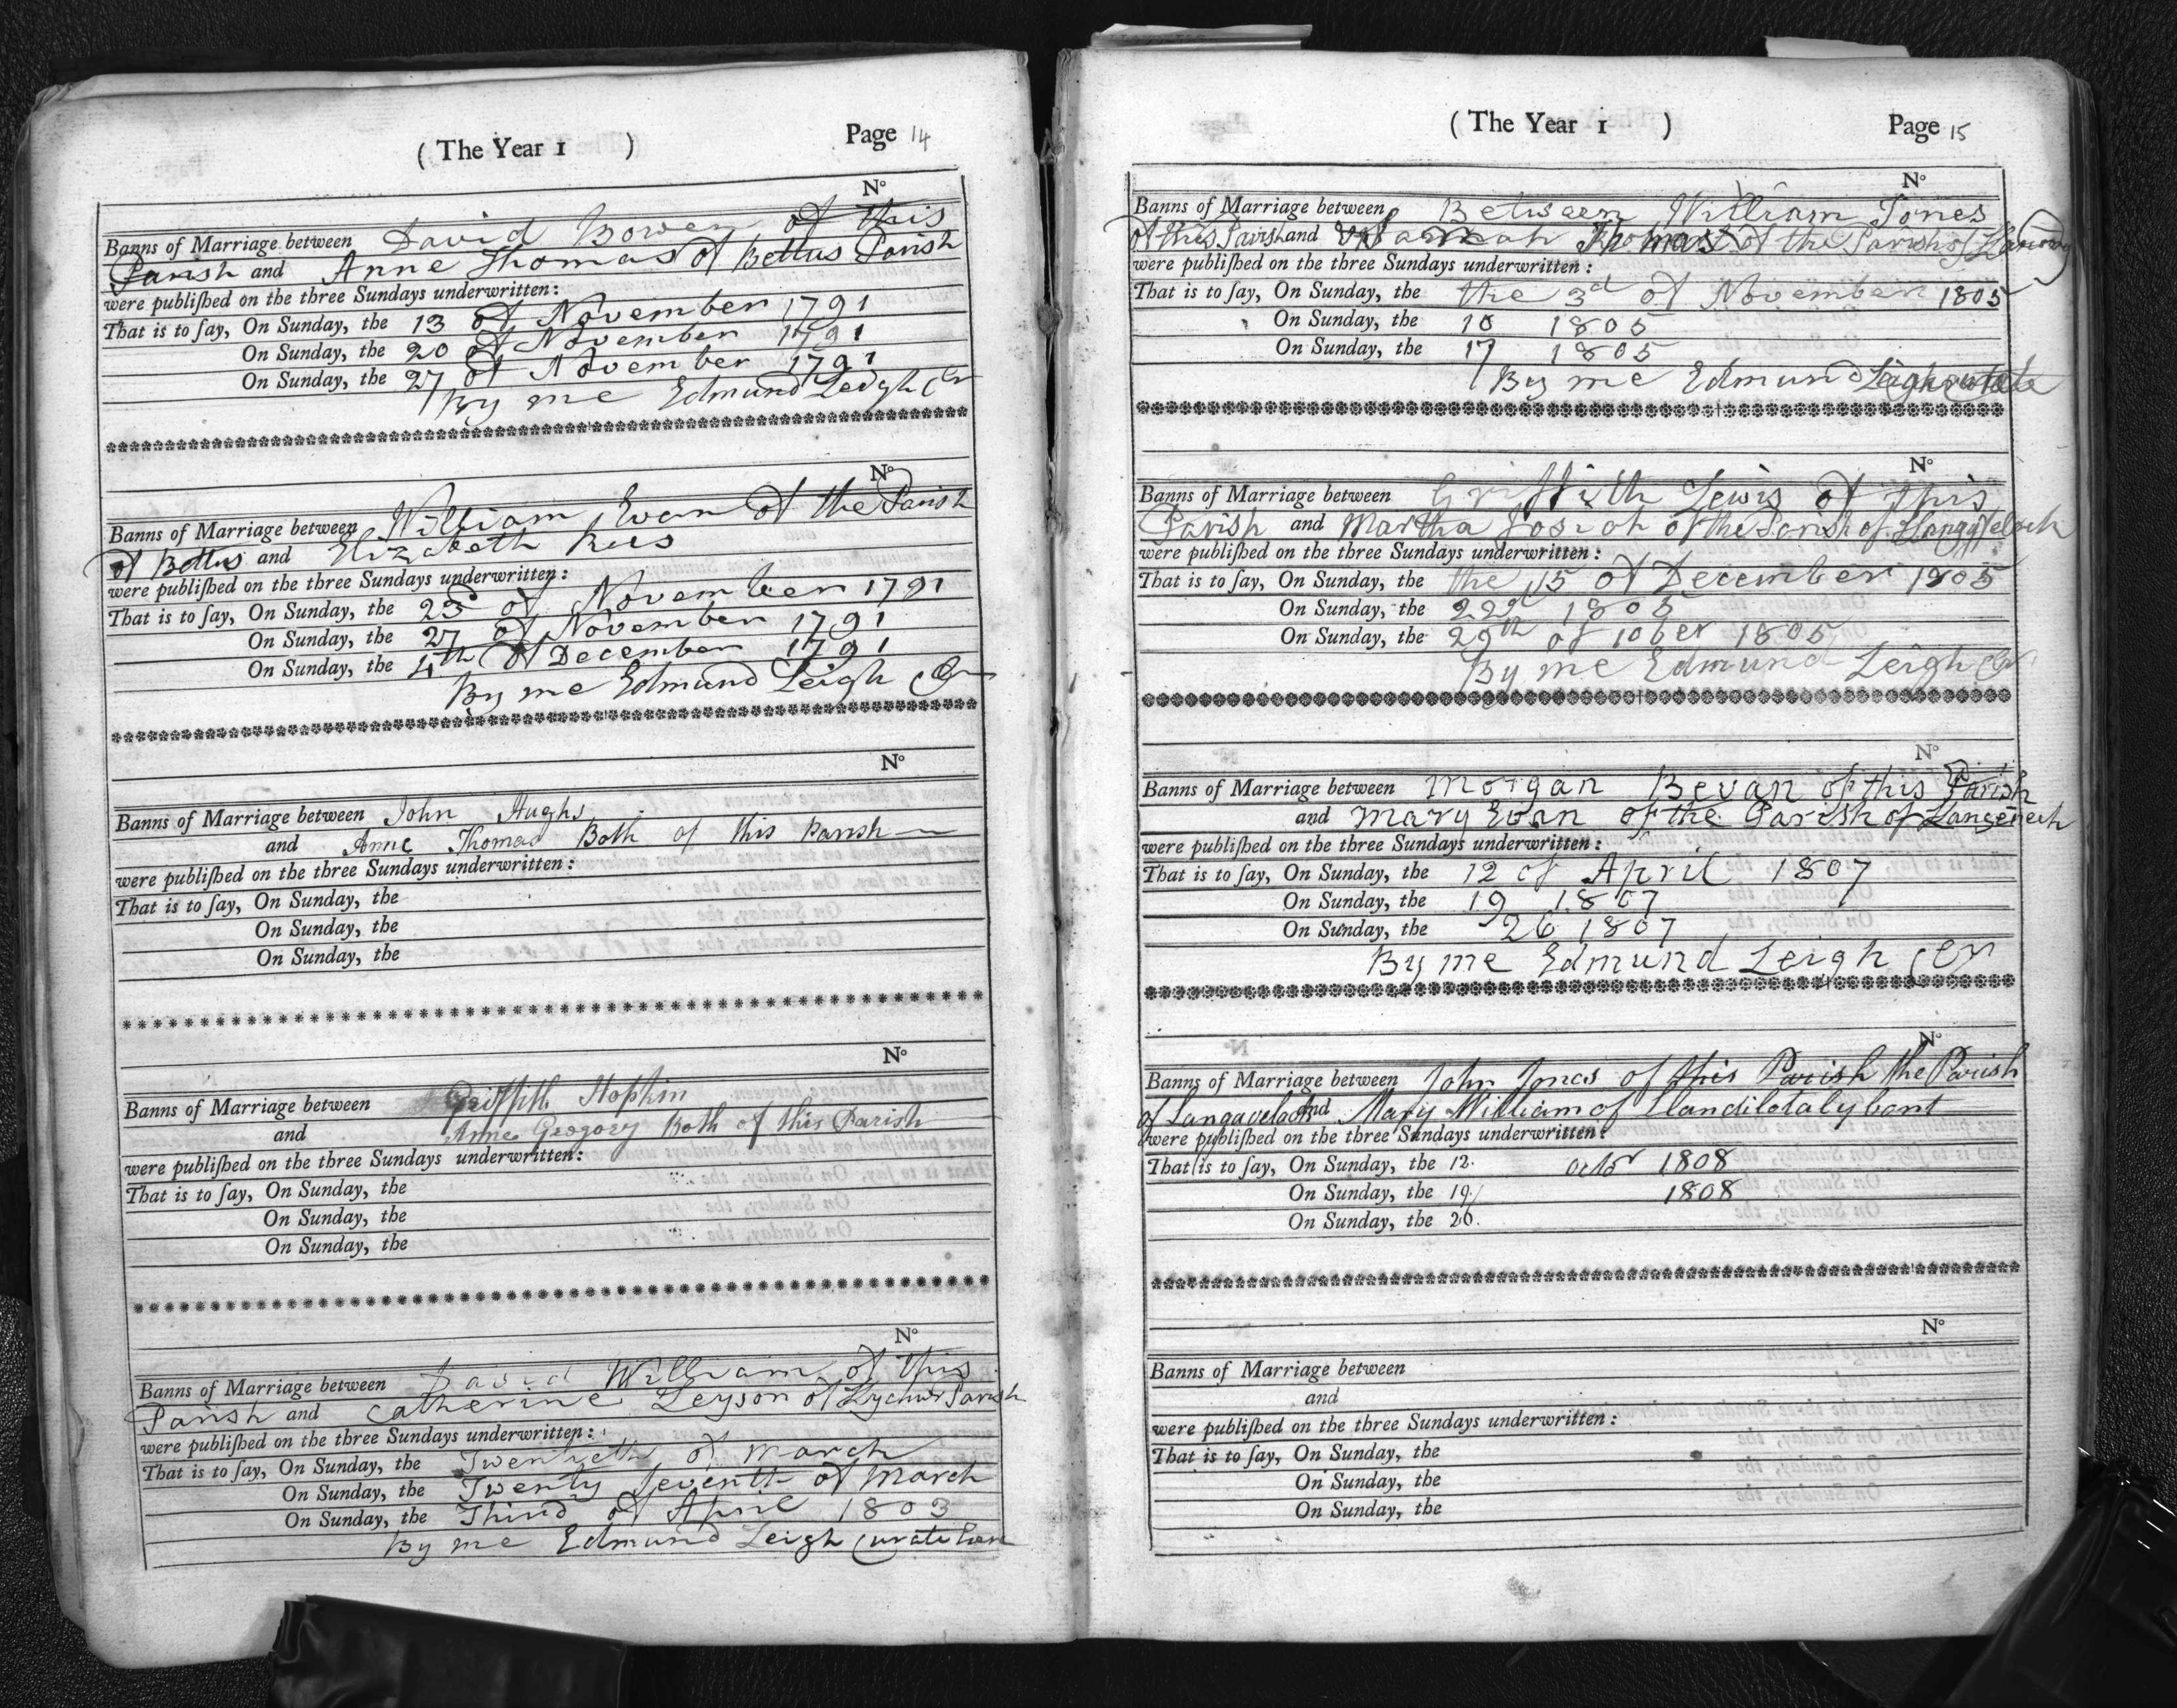 ( The Year 1 ) Page 14
N°
Banns of Marriage between David Bowen of this
Parish and Anne Thomas of Bettus Parish
were publiſhed on the three Sundays underwritten:
That is to ſay, On Sunday, the 13 of November 1791
On Sunday, the 20 of November 1791
On Sunday, the 27 of November 1791
By me Edmund Leigh Cr
N°
Banns of Marriage between William Evan of the Parish
of Bettus and Elizabeth Rees
were publiſhed on the three Sundays underwritten:
That is to ſay, On Sunday, the of November 1791
On Sunday, the 27 of November 1791
On Sunday, the 4th of December 1791
By me Edmund Leigh Cr
N°
Banns of Marriage between John Hughs
and Anne Thomas Both of this Parish
were publiſhed on the three Sundays underwritten:
That is to ſay, On Sunday, the
On Sunday, the
On Sunday, the
N°
Banns of Marriage between Griffith Hopkin
and Anne Gregory Both of this Parish
were publiſhed on the three Sundays underwritten:
That is to ſay, On Sunday, the
On Sunday, the
On Sunday, the
N°
Banns of Marriage between David William of this
Parish and Catherine Leyson of Lychwr Parish
were publiſhed on the three Sundays underwritten:
That is to ſay, On Sunday, the Twentieth of March
On Sunday, the Twenty Seventh of March
On Sunday, the Third of April 1803
By me Edmund Leigh Curate
( The Year 1 ) Page 15
N°
Banns of Marriage between Between William Jones
of this Parish and Hannah Thomas of the Parish of
were publiſhed on the three Sundays underwritten:
That is to ſay, On Sunday, the the 3d of November 1805
On Sunday, the 10 1805
On Sunday, the 17 1805
By me Edmund Leigh Curate
N°
Banns of Marriage between Griffith Lewis of this
Parish and Martha Josiah of the Parish of Llangyfelach
were publiſhed on the three Sundays underwritten:
That is to ſay, On Sunday, the the 15 of December 1805
On Sunday, the 22d 1805
On Sunday, the 29th of 10ber 1805
By me Edmund Leigh Cr
N°
Banns of Marriage between Morgan Bevan of this Parish
and Mary Evan of the Parish of Langenech
were publiſhed on the three Sundays underwritten:
That is to ſay, On Sunday, the 12 of April 1807
On Sunday, the 19 1807
On Sunday, the 26 1807
By me Edmund Leigh Cr
N°
Banns of Marriage between John Jones of this Parish the Parish
of Langavelach and Mary William of Llandilotalybont
were publiſhed on the three Sundays underwritten:
That is to ſay, On Sunday, the 12. Octor 1808
On Sunday, the 19. 1808
On Sunday, the 26.
N°
Banns of Marriage between
and
were publiſhed on the three Sundays underwritten:
That is to ſay, On Sunday, the
On Sunday, the
On Sunday, the